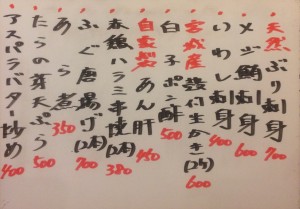 天然ぶり刺身 700
メジ鮪刺身 600
いわし刺身 400
宮城産殻付生かき(2ヶ) 600
白子ポン酢 500
自家製あん肝 450
赤鶏ハラミ串焼(2本) 380
ふぐ唐揚げ(2ヶ) 700
あら煮 350
たらの芽天ぷら 500
アスパラバター炒め 400